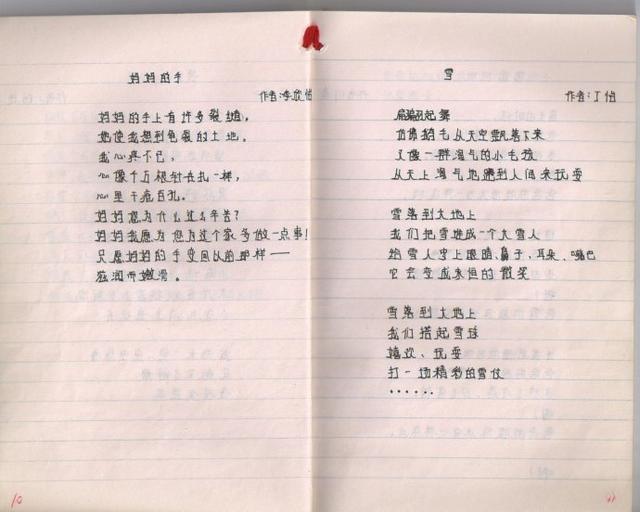 妈妈的手
作者:李欣怡
妈妈的手上有许多裂缝,
她使我想到龟裂的土地。
我心疼不已,
心像千万根针在扎一样,
心里千疮百孔。
妈妈您为什么这么辛苦?
妈妈我愿为您为这个家多做一点事!
只愿妈妈的手变回以前那样——
滋润而嫩滑。
10
雪
作者:丁怡
翩翩起舞
仿佛鹅毛从天空飘落下来
又像一群淘气的小毛孩
从天上淘气地蹦到人间来玩耍
雪落到大地上
我们把雪堆成一个大雪人
给雪人安上眼睛、鼻子、耳朵、嘴巴
它会变成永恒的微笑
雪落到大地上
我们搭起雪球
嬉戏、玩耍
打一场精彩的雪仗
······
11